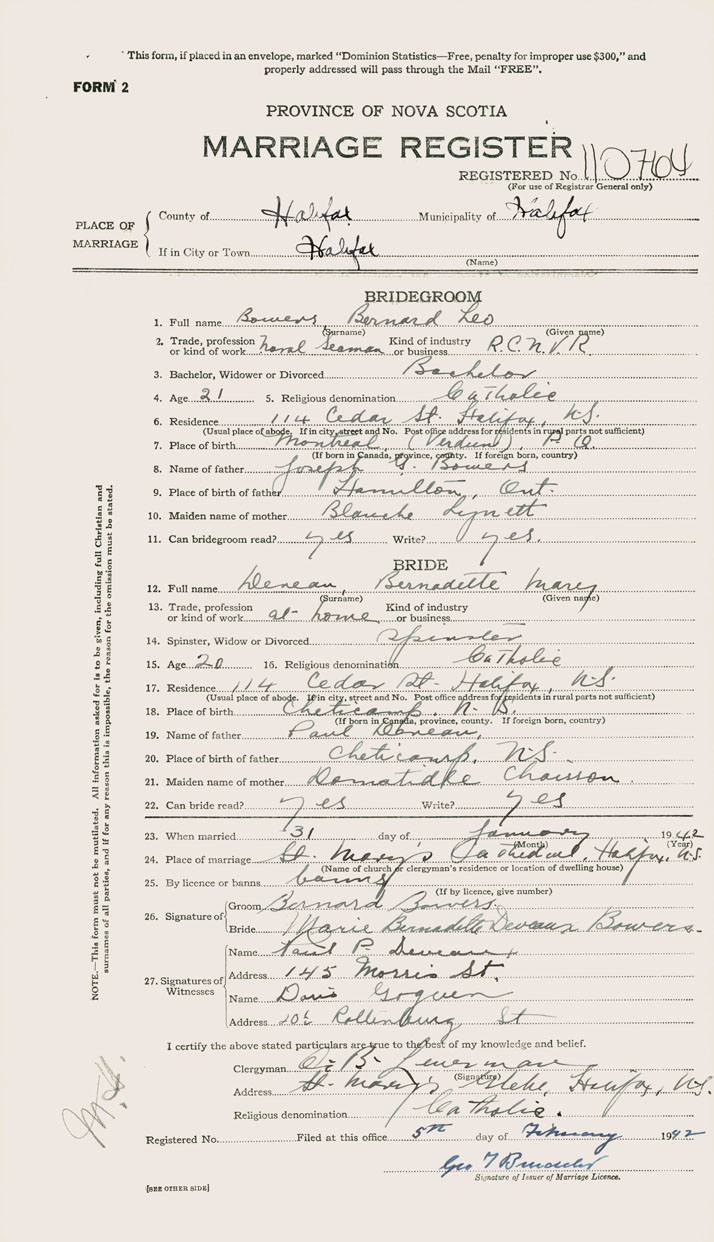 This form, if placed in an envelope, marked "Dominion Statistics—Free, penalty for improper use $300," and
properly addressed will pass through the Mail "FREE".
FORM 2
PROVINCE OF NOVA SCOTIA
MARRIAGE REGISTER
REGISTERED No. 110764
(For use of Registrar General only)
PLACE OF MARRIAGE
County of Halifax Municipality of Halifax
If in City or Town Halifax
(Name)
BRIDEGROOM
1. Full name Bowers, Bernard Leo
(Surname) (Given name)
2. Trade, profession or kind of work Naval Seaman Kind of industry or business R.C.N.V.R.
3. Bachelor, Widower or Divorced Bachelor
4. Age 21 5. Religious denomination Catholic
6. Residence 114 Cedar St. Halifax, N.S.
(Usual place of abode. If in city, street and No. Post office address for residents in rural parts not sufficient)
7. Place of birth Montreal, (Verdun) P.Q.
(If born in Canada, province, county. If foreign born, country)
8. Name of father Joseph G. Bowers
9. Place of birth of father Hamilton, Ont.
10. Maiden name of mother Blanche Lynett
11. Can bridegroom read? yes Write? yes.
BRIDE
12. Full name Deveau, Bernadette Mary
(Surname) (Given name)
13. Trade, profession or kind of work at home Kind of industry or business
14. Spinster, Widow or Divorced Spinster
15. Age 20 16. Religious denomination Catholic
17. Residence 114 Cedar St. Halifax, N.S.
(Usual place of abode. If in city, street and No. Post office address for residents in rural parts not sufficient)
18. Place of birth Cheticamp, N.S.
(If born in Canada, province, county. If foreign born, country)
19. Name of father Paul Deveau,
20. Place of birth of father Cheticamp, N.S.
21. Maiden name of mother Domatidle Chaisson.
22. Can bride read? yes Write? yes
23. When married 31 day of January 1942
(Month) (Year)
24. Place of marriage St. Mary's Cathedral, Halifax, N.S.
(Name of church or clergyman's residence or location of dwelling house)
25. By licence or banns banns
(If by licence, give number)
26. Signature of
Groom Bernard Bowers.
Bride Marie Bernadette Deveaux Bowers.
27. Signatures of Witnesses
Name Paul P. Deveau
Address 145 Morris St.
Name Doris Goguen
Address Rottenburg St
I certify the above stated particulars are true to the best of my knowledge and belief.
Clergyman
(Signature)
Address St. Mary's Glebe, Halifax, N.S.
Religious denomination Catholic.
Registered No. Filed at this office 5th day of February 1942
Geo
Signature of Issuer of Marriage Licence.
[SEE OTHER SIDE]
NOTE.—This form must not be mutilated. All information asked for is to be given, including full Christian and
surnames of all parties, and if for any reason this is impossible, the reason for the omission must be stated.